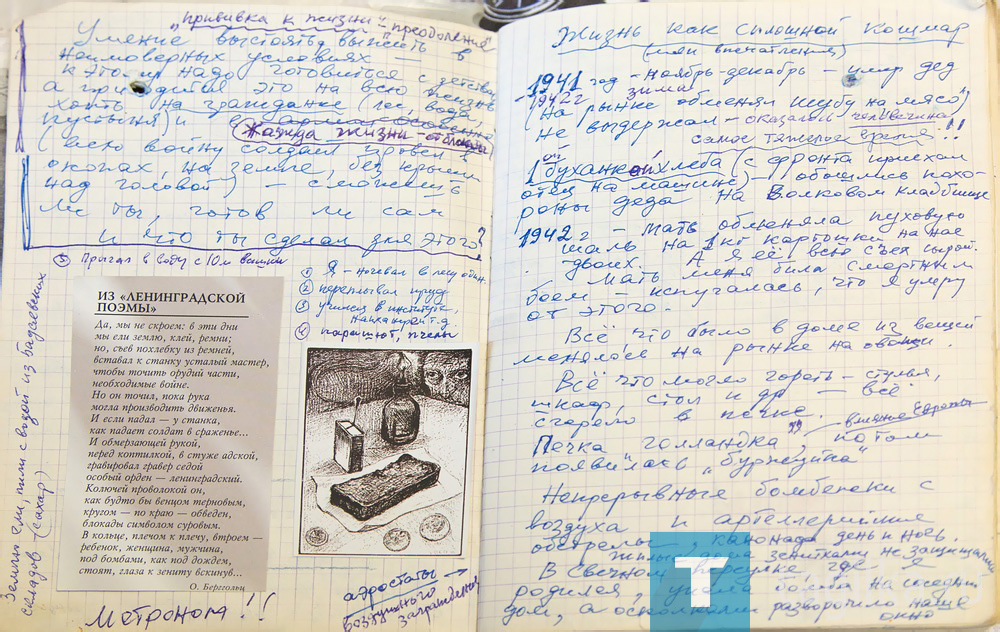 „прививка к жизни" – преодоление
Умение выстоять, выжить в
неимоверных условиях —
к этому надо готовиться с детства
а пригодится это на всю жизнь
хоть на гражданке (лес, вода
пустыня) и в
Жажда жизни –
(всю войну солдат провёл в
окопах, на земле, без крыши
над головой) – сможешь
ли ты, готов ли сам
и что ты сделал для этого?
Прыгал в воду с 10м вышки
① Я – ночевал в лесу один
② переплывал пруд
③ учился в институте,
④ парашют, пчелы
ИЗ «ЛЕНИНГРАДСКОЙ
ПОЭМЫ»
Да, мы не скроем: в эти дни
мы ели землю, клей, ремни;
но, съев похлебку из ремней,
вставал к станку усталый мастер,
чтобы точить орудий части,
необходимые войне.
Но он точил, пока рука
могла производить движенья.
И если падал — у станка,
как падает солдат в сраженье...
И обмерзающей рукой,
перед коптилкой, в стуже адской,
гравировал гравер седой
особый орден — ленинградский.
Колючей проволокой он,
как будто бы венцом терновым,
кругом — по краю — обведен,
блокады символом суровым.
В кольце, плечом к плечу, втроем —
ребенок, женщина, мужчина,
под бомбами, как под дождем,
стоят, глаза к зениту вскинув...
О. Берггольц
Землю ели пили с водой из Бадаевских
складов (сахар)
Метроном!!
аэростаты →
воздушного
заграждения
Жизнь как сплошной кошмар
(мои впечатления)
1941 год – ноябрь-декабрь – умер дед
– 1942г зима
(на рынке обменял шубу на мясо)
не выдержал – оказалась человечина
самое тяжелое время!!
1 буханкой хлеба (с фронта приехал
отец на машине) – обошлись похо-
роны деда на Волковом кладбище
1942 г – Мать обменяла пуховую
шаль на 1кг картошки на нас
двоих. А я её всю съел сырой.
Мать меня била смертным
боем – испугалась, что я умру
от этого.
Всё, что было в доме из вещей
менялось на рынке на
Всё что могло гореть – стулья,
шкаф, стол и др – всё
сгорело в печке.
Печка „голландка" – влияние Европы
потом
появилась „буржуйка"
Непрерывные бомбёжки с
воздуха и артеллерийские
обстрелы, канонада день и ночь.
жилые дома зенитками не защищали
В Свечном переулке, где я
родился, упала бомба на соседний
дом, а осколками разворотило наше
окно
Т